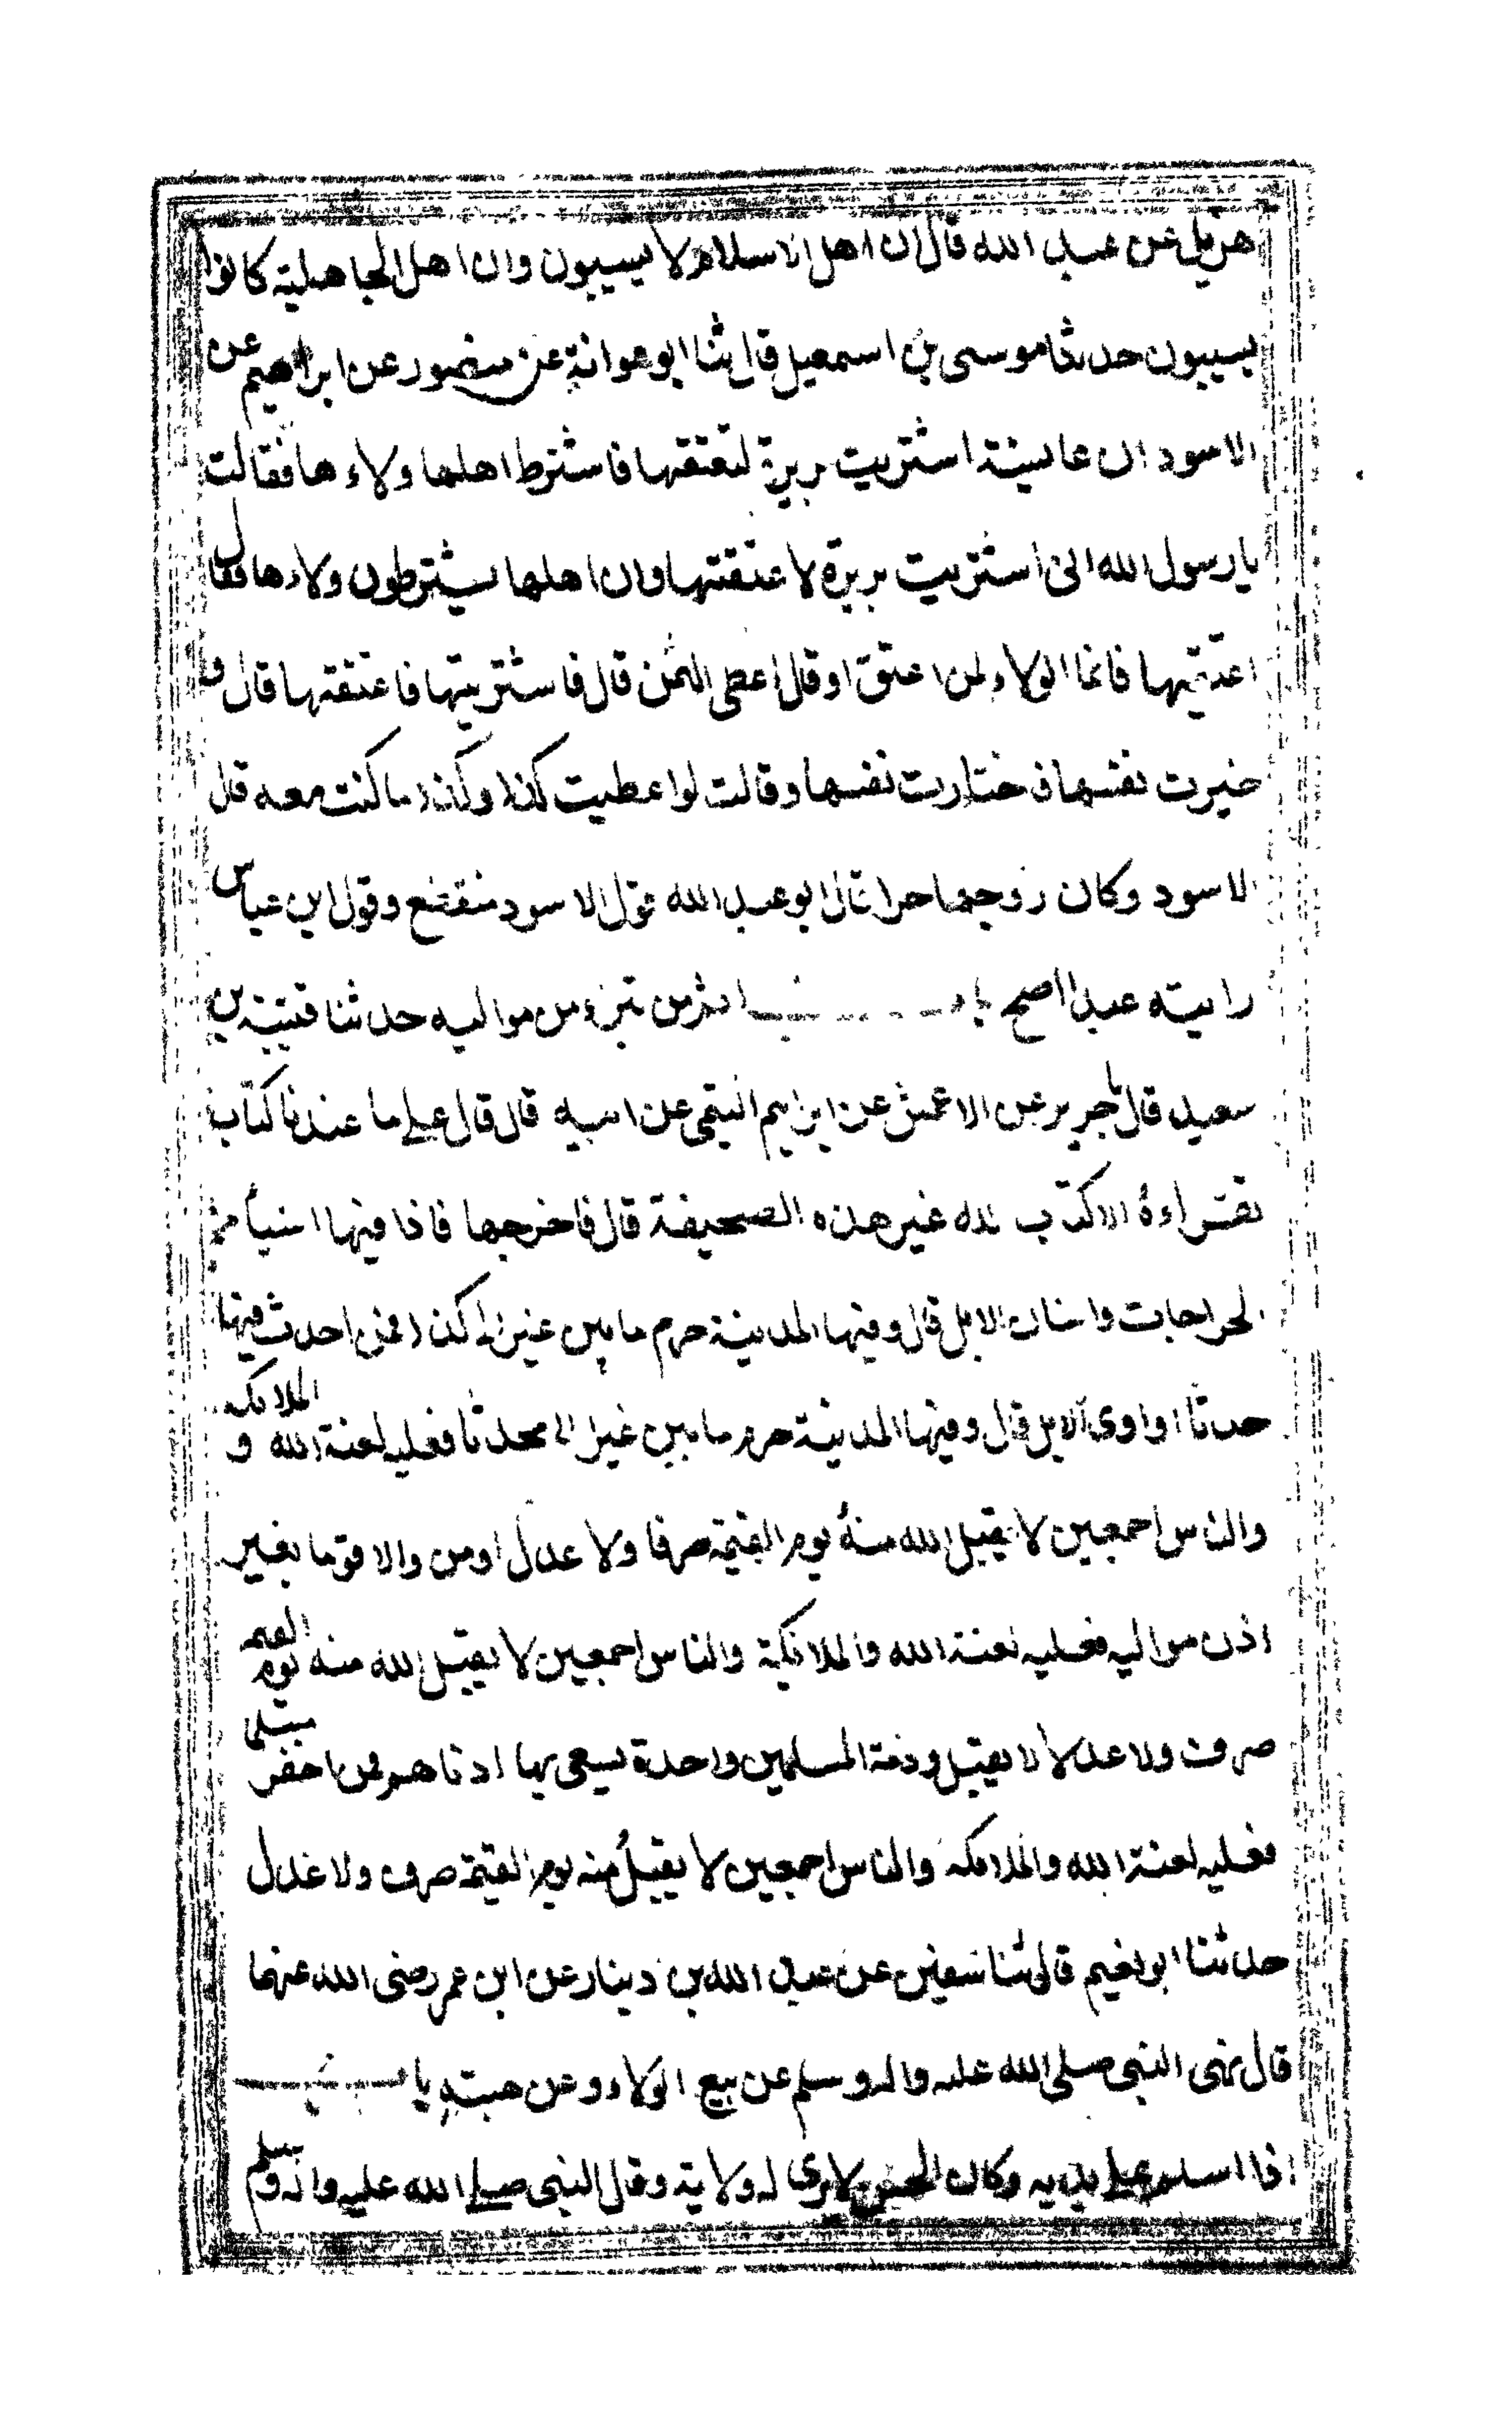 هزيل عن عبد الله قال ان اهل الاسلام لا يسيبون وان اهل الجاهلية كانوا
يسيبون حدثنا موسى بن اسمعيل قال ثنا ابو عوانة عن منصور عن ابراهيم عن
الاسود ان عايشة اشتريت بريرة لتعتقها فاشترط اهلها ولاءها فقالت
يا رسول الله انى اشتريت بريرة لاعتقتها وان اهلها يشترطون ولاءها فقال
اعتقيها فانما الولاء لمن اعتق او قال اعطى الثمن قال فاشتريتها فاعتقتها قال و
خيرت نفسها فاختارت نفسها وقالت لو اعطيت كذا وكذا ما كنت معه قال
الاسود وكان زوجها حرا قال ابو عبد الله قول الاسود منقطع وقول ابن عباس
رايته عبدا اصح باب اثم من تبرء من مواليه حدثنا قتيبة بن
سعيد قال نا جرير عن الاعمش عن ابراهيم التيمى عن ابيه قال قال على ما عندنا كتاب
نقراءه الا كتاب الله غير هذه الصحيفة قال فاخرجها فاذا فيها اشيأ من
الجراحات واسنان الابل قال وفيها المدينة حرم ما بين عير الى كذا فمن احدث فيها
حدثا او اوى الابل قال وفيها المدينة حرم ما بين عير الى محدثا فعليه لعنة الله و الملائكه
والناس اجمعين لا يقبل الله منه يوم القيمة صرفا ولا عدل او من والا قوما بغير
اذن مواليه فعليه لعنة الله والملائكة والناس اجمعين لا يقبل الله منه يوم القيمه
صرف ولا عدل لا يقبل وذمة المسلمين واحدة يسعى بها ادناهم فمن اخفر
فعليه لعنة الله والملائكه والناس اجمعين لا يقبل منه يوم القيمة صرف ولا عدل
حدثنا ابو نعيم قال ثنا سفين عن عبد الله بن دينار عن ابن عمر رضى الله عنهما
قال نهى النبى صلى الله عليه واله وسلم عن بيع الولاء وعن هبته باب
اذا اسلم على يديه وكان الحسن لا يرى له ولاية وقال النبى صلى الله عليه واله وسلم